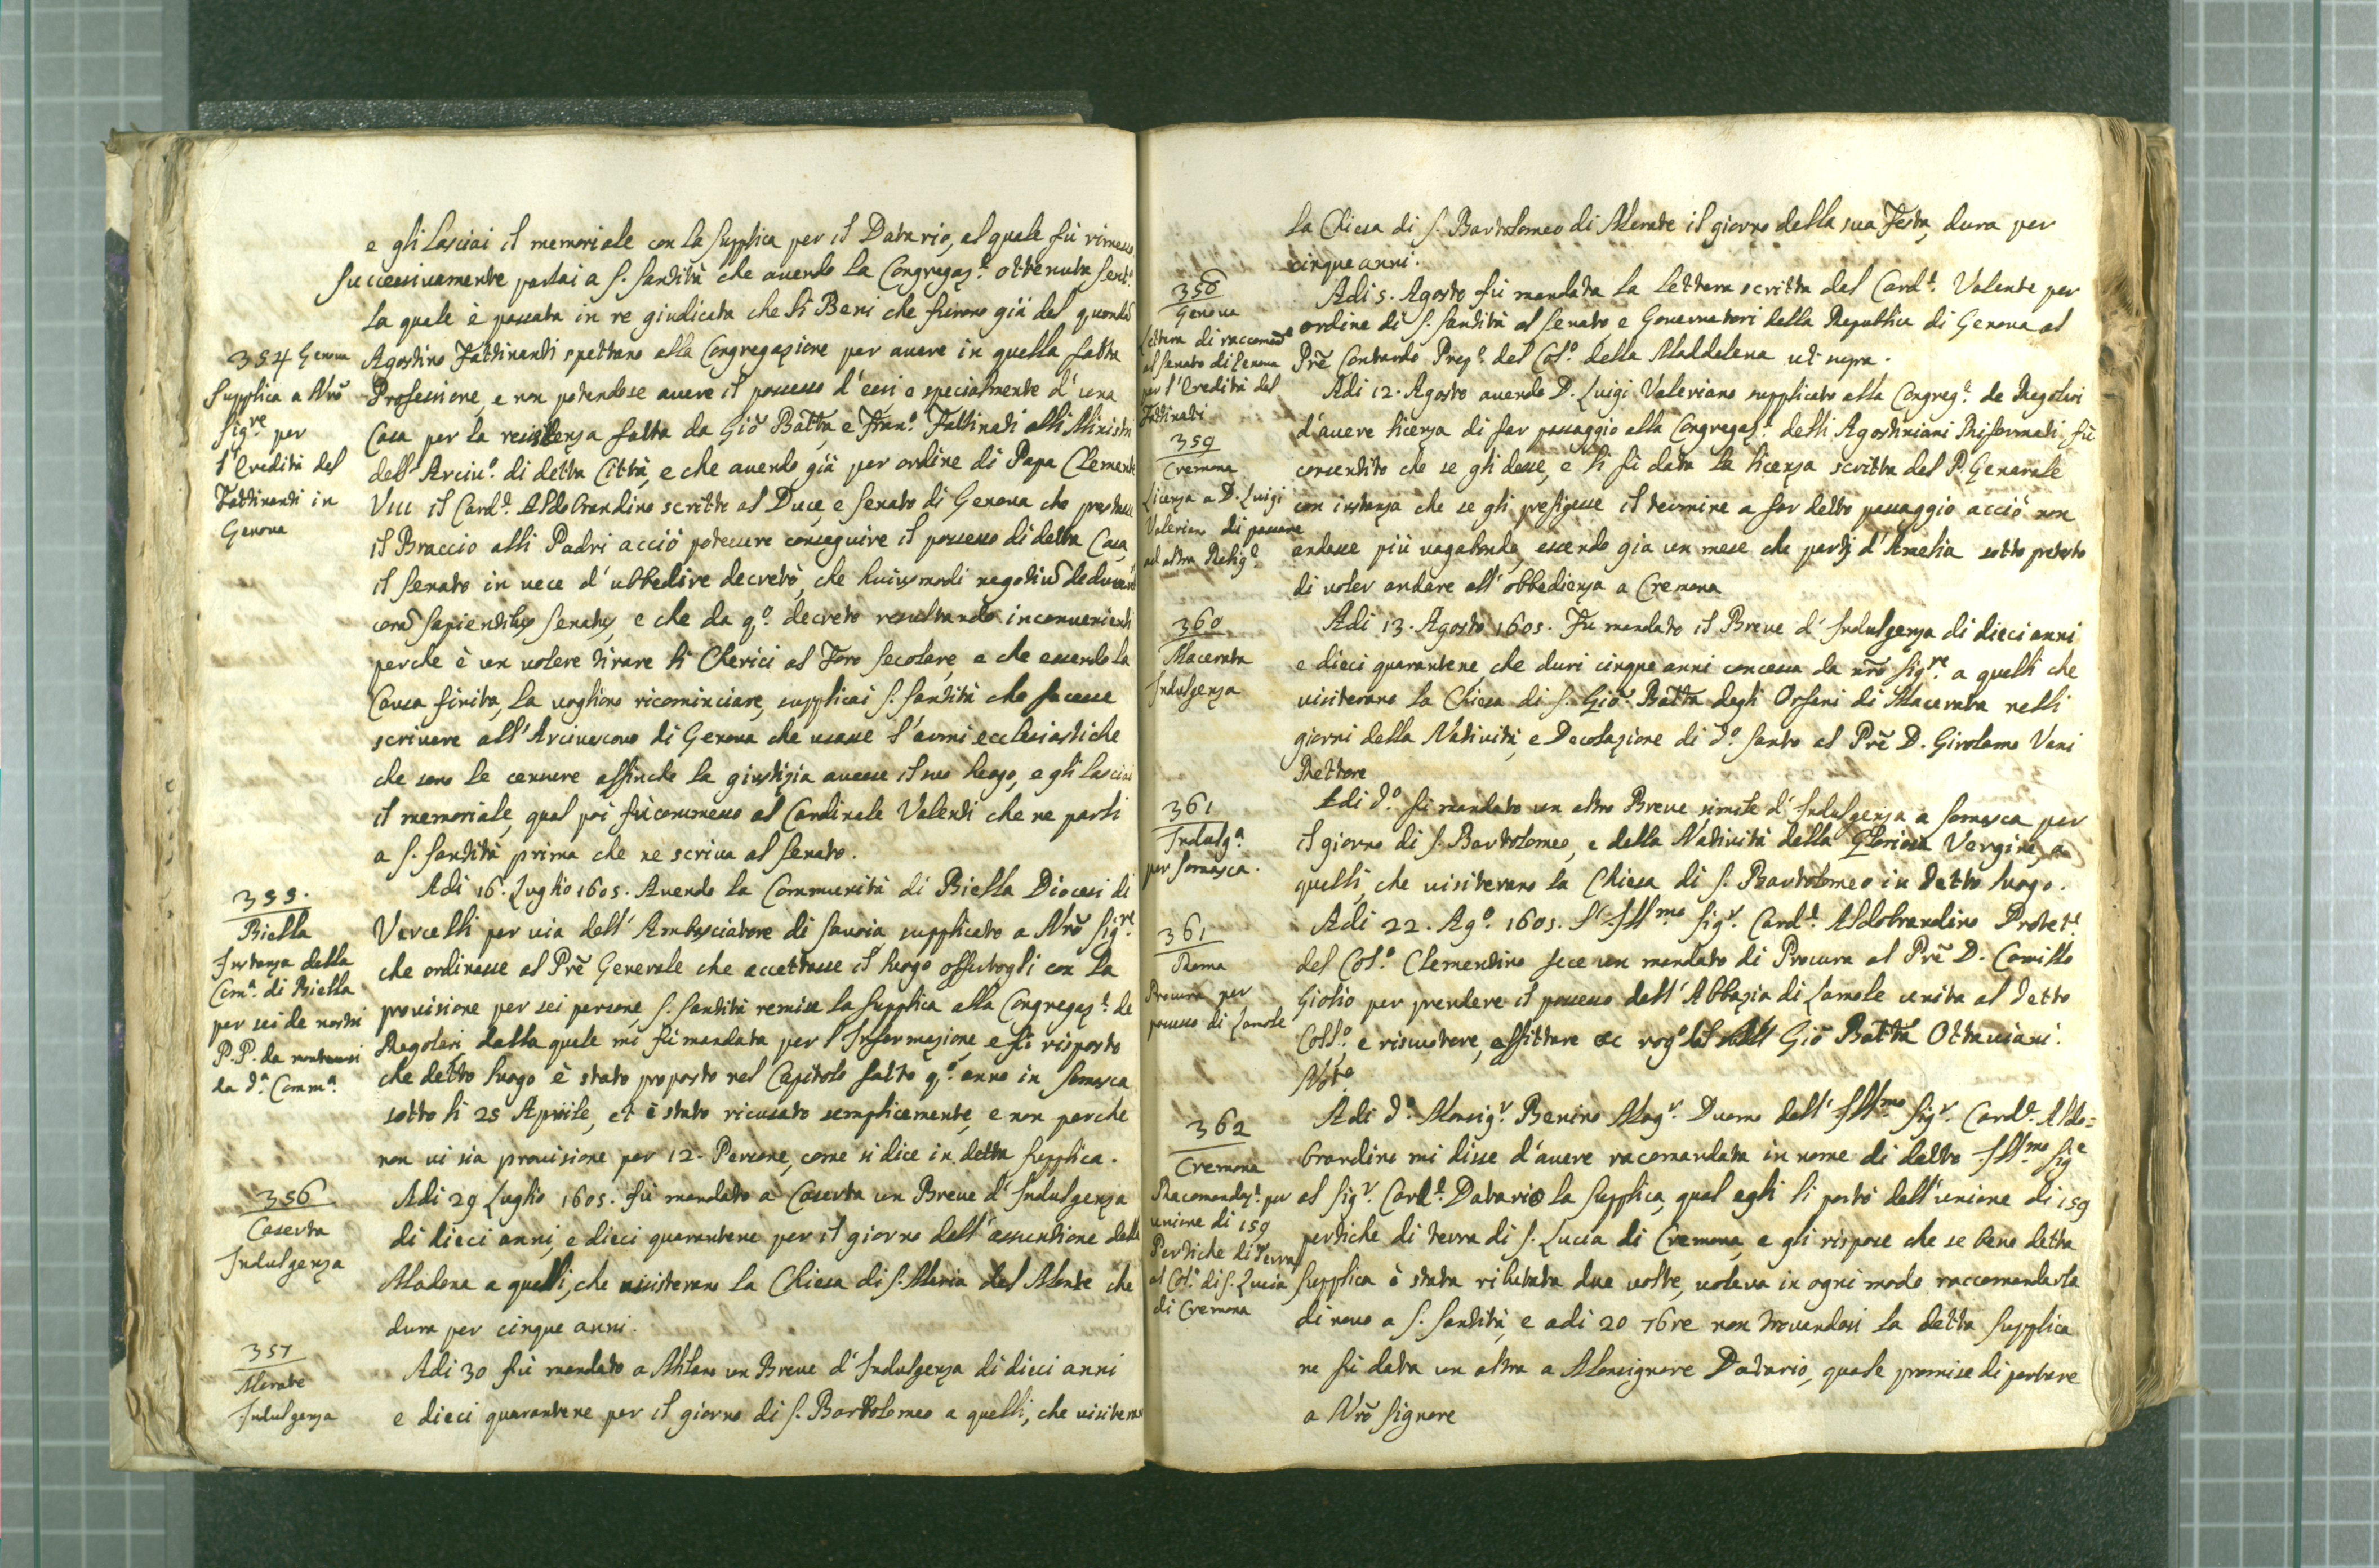 e gli lasciai il memoriale con la supplica per il Datario, al quale fù rimesso
successivamente parlai a S. Santità che avendo la Congregaz.e ottenuta sent.a
la quale è passata in re giudicata che li Beni che furono già del quondā
354 Genova
Supplica a Nrō
Sig.re per
l'Eredità del
Fattinanti in
Genova
Agostino Fattinanti spettano alla Congregazione per avere in quella fatta
Professione, e non potendose avere il possesso d'essi o specialmente d'una
Casa per la resistenza fatta da Giō Batta, e Fran.o Fattinati alli Ministri
dell'Arciv.o di detta Città, e che avendo già per ordine di Papa Clemente
VIII il Card.e Aldobrandino scritto al Duce, e Senato di Genova che prestasse
il Braccio alli Padri acciò potessero conseguire il possesso di detta Casa,
il Senato in vece d'ubbedire decretò, che huiusmodi negotiū
corā Sapientibus Senatus, e che da q.o decreto resultando inconvenienti
perche è un volere tirare li Cherici al Foro Secolare, e che essendo la
Causa finita, la vogliono ricominciare, supplicai S. Santità che facesse
scrivere all'Arcivescovo di Genova che usasse l'armi ecclesiastiche
che sono le censure affinche la giustizia avesse il suo luogo, e gli lasciai
il memoriale, qual poi fù commesso al Cardinale Valenti che ne parli
a S. Santità prima che ne scriva al Senato.
355.
Biella
Instanza della
Com.a di Biella
per sei de nostri
P.P. da
da d.a Comm.a
Adi 16. Luglio 1605. Avendo la Communità di Biella Diocesi di
Vercelli per via dell'Ambasciatore di Savoia supplicato a Nrō Sig.re
che ordinasse al Prē Generale che accettasse il luogo offertogli con la
provisione per sei persone, S. Santità remise la supplica alla Congregaz.e de
Regolari dalla quale mi fù mandata per l'Informazione, e fù risposto
che detto luogo è stato proposto nel Capitolo fatto q.o anno in Somasca
sotto li 25 Aprile, et è stato ricusato semplicemente, e non perche
non vi sia provisione per 12. Persone, come si dice in detta supplica.
356
Caserta
Indulgenza
Adi 29 Luglio 1605. fù mandato a Caserta un Breve d'Indulgenza
di dieci anni, e dieci quarantene per il giorno dell'assuntione della
Madona a quelli, che visiterano la Chiesa di S. Maria del Monte che
dura per cinque anni.
357
Merate
Indulgenza
Adi 30 fù mandato a Milano un Breve d'Indulgenza di dieci anni
e dieci quarantene per il giorno di S. Bartolomeo a quelli, che visiterano
la Chiesa di S. Bartolomeo di Merate il giorno della sua Festa, dura per
cinque anni.
358
Genova
Lettera di raccomād.e
al Senato di Genova
per l'Eredità del
Fattinati
Adi 5. Agosto fù mandata la lettera scritta dal Card.e Valente per
ordine di S. Santità al Senato e Governatori della Republica di Genova al
Prē Contardo Prep.o del Col.o della Maddalena ut supra.
359
Cremona
Licenza a D. Luigi
Valeriano di passare
ad altra Relig.e
Adi 12. Agosto avendo D. Luigi Valeriano supplicato alla Congreg.e de Regolari
d'avere licenza di far passaggio alla Congregaz.e delli Agostiniani Riformati fù
consentito che se gli desse, e li fù data la licenza scritta dal P. Generale
con instanza che se gli prefigesse il termine a far detto passaggio acciò non
andasse più vagabondo, essendo gia un mese che partj d'Amelia sotto pretesto
di voler andare all'obbedienza a Cremona
360
Macerata
Indulgenza
Adi 13. Agosto 1605. Fu mandato il Breve d'Indulgenza di dieci anni
e dieci quarantene, che duri cinque anni concessa da nrō Sig.re a quelli che
visiterano la Chiesa di S. Giō: Batta degli Orfani di Macerata nelli
giorni della Natività, e Decolazione di d.o Santo al Prē D. Girolamo Vani
Rettore
361
Indulg.a
per Somasca.
Adi d.o fù mandato un altro Breve simile d'Indulgenza a Somasca per
il giorno di S. Bartolomeo, e della Natività della Gloriosa Vergine, a
quelli, che visiterano la Chiesa di S. Bartolomeo in detto luogo.
361
Roma
Procura per
possesso di Lamole
Adi 22. Ag.o 1605. L'Ill.mo Sig.r Card.e Aldobrandino Protet.e
del Col.o Clementino fece un mandato di Procura al Prē D. Camillo
Giolio per prendere il possesso dell'Abbazia di Lamole unita al detto
Coll.o e riscuotere, affittare &c rog.o Giō Batta Ottaviani.
Not.o
362
Cremona
Racomandaz.e per
unione di 159
Pertiche di Terra
al Col.o di S. Lucia
di Cremona
Adi d.o Monsig.r Benino Mag.r Duomo dell'Ill.mo Sig.r Card.e Aldo=
brandino mi disse d'avere racomandata in nome di detto Ill.mo Sig.e
al Sig.r Card.e Datario la supplica, qual egli li portò dell'unione di 159
pertiche di terra di S. Lucia di Cremona, e gli rispose che se bene detta
supplica è stata rifiutata due volte, voleva in ogni modo raccomandarla
di novo a S. Santità, e adi 20 7bre non trovandosi la detta supplica
ne fù data un altra a Monsignore Datario, quale promise di portare
a Nrō Signore